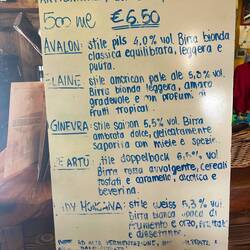 500 ml €6.50
AVALON: stile pils 4,0% vol. Birra bionda
classica equilibrata, leggera e
pulita.
ELAINE: stile american pale ale 5,8% vol.
Birra bionda leggera, amaro
gradevole e un profumo di
frutti tropicali.
GINEVRA: stile saison 6,5% vol. Birra
ambrata dolce, delicatamente
saporita con miele e spezie.
RE ARTÙ: stile doppelbock vol.
Birra rossa avvolgente, cereali
tostati e caramello, alcolica e
beverina.
stile weiss 5,3% vol.
Birra bianca di
frumento e orzo, fruttata
e dissetante.